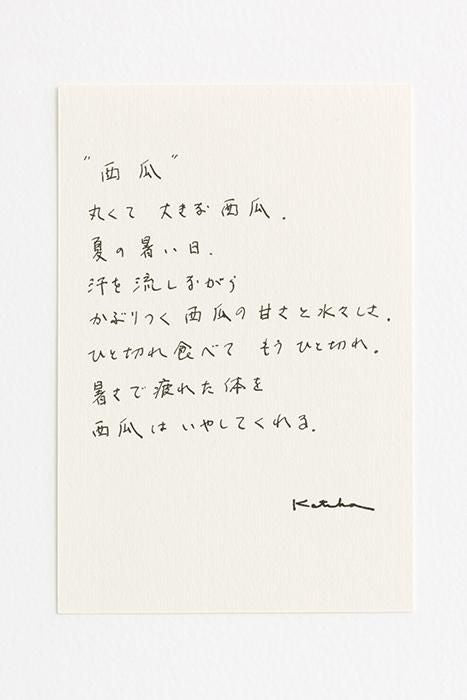 "西瓜"
丸くて 大きな 西瓜.
夏の暑い日.
汗を流しながら
かぶりつく 西瓜の甘さと水々しさ.
ひと切れ食べて もう ひと切れ.
暑さで疲れた体を
西瓜は いやしてくれる.